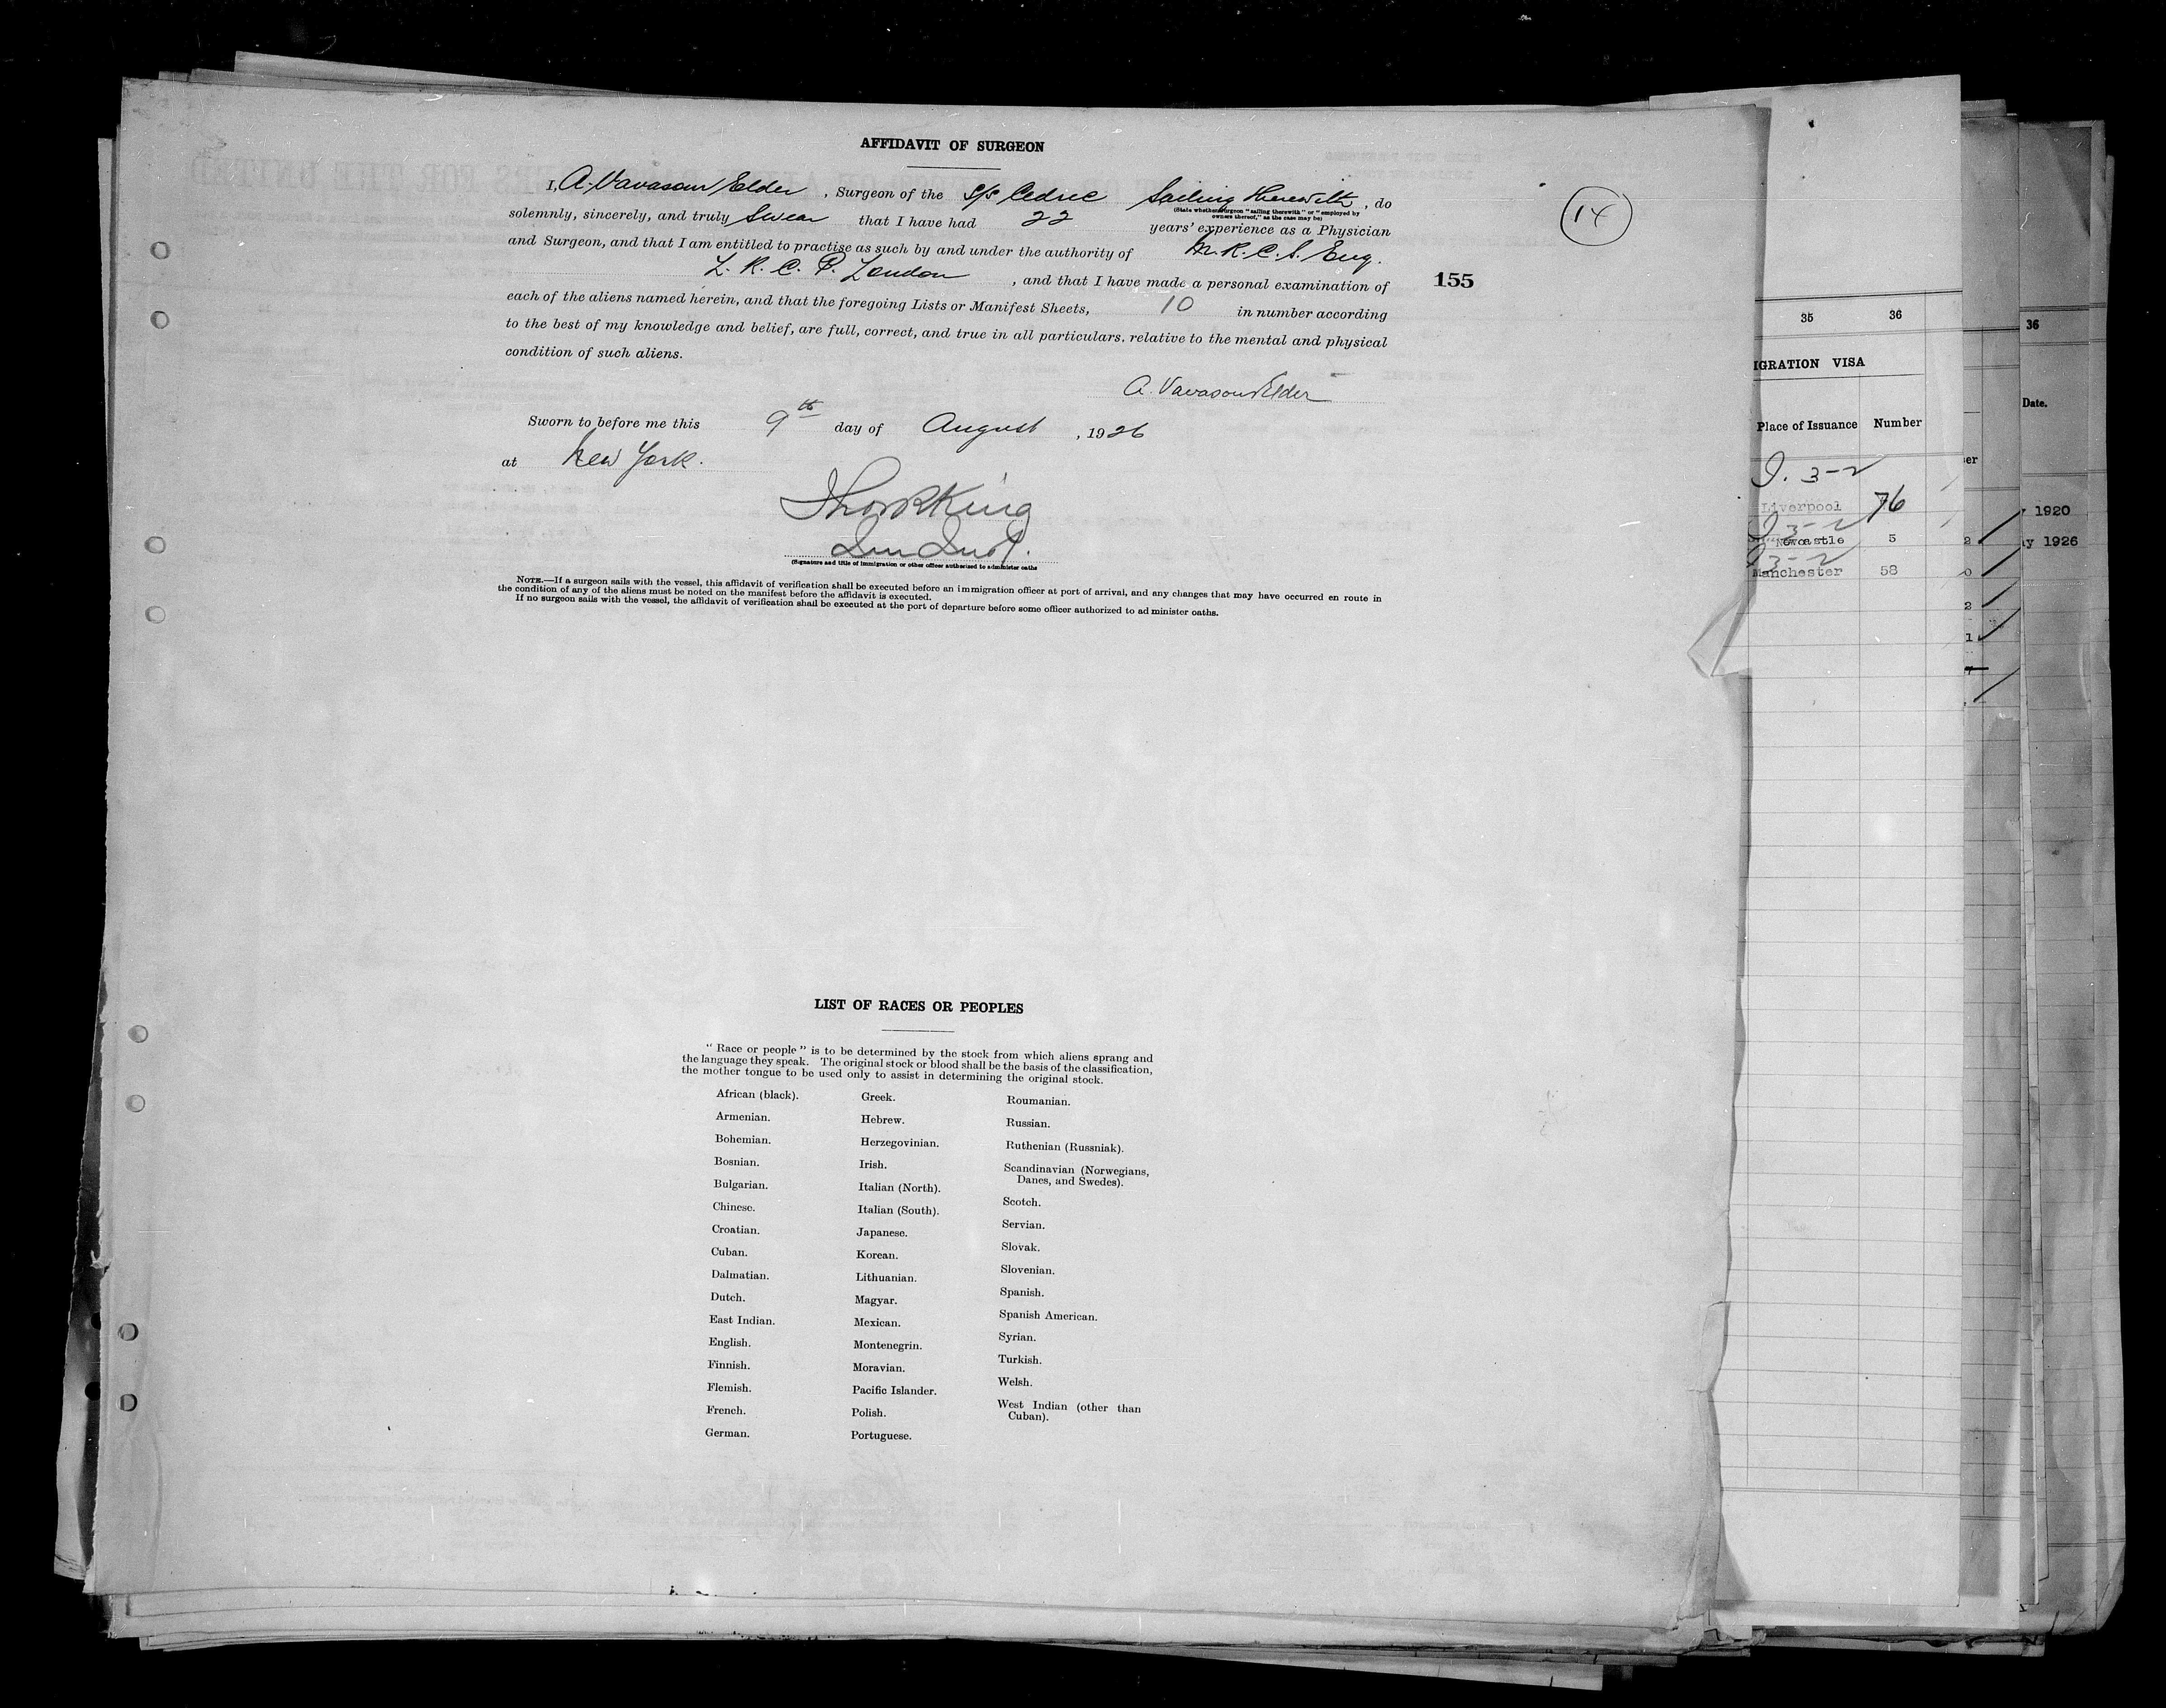 AFFIDAVIT OF SURGEON
I, A. Vavasour Elder, Surgeon of the S/S Cedric Sailing Herewith, do
(State whether surgeon "sailing therewith" or "employed by
owners thereof," as the case may be)
solemnly, sincerely, and truly Swear that I have had 22 years' experience as a Physician
and Surgeon, and that I am entitled to practise as such by and under the authority of M.R.C.S. Eng.
L.R.C.P. London, and that I have made a personal examination of
each of the aliens named herein, and that the foregoing Lists or Manifest Sheets, 10 in number according
to the best of my knowledge and belief, are full, correct, and true in all particulars, relative to the mental and physical
condition of such aliens.
A. Vavasour Elder
Sworn to before me this 9th day of August, 1926
at New York.
King
(Signature and title of immigration or other officer authorized to administer oaths
NOTE.—If a surgeon sails with the vessel, this affidavit of verification shall be executed before an immigration officer at port of arrival, and any changes that may have occurred en route in
the condition of any of the aliens must be noted on the manifest before the affidavit is executed.
If no surgeon sails with the vessel, the affidavit of verification shall be executed at the port of departure before some officer authorized to administer oaths.
14
155
LIST OF RACES OR PEOPLES
"Race or people" is to be determined by the stock from which aliens sprang and
the language they speak. The original stock or blood shall be the basis of the classification,
the mother tongue to be used only to assist in determining the original stock.
African (black).
Armenian.
Bohemian.
Bosnian.
Bulgarian.
Chinese.
Croatian.
Cuban.
Dalmatian.
Dutch.
East Indian.
English.
Finnish.
Flemish.
French.
German.
Greek.
Hebrew.
Herzegovinian.
Irish.
Italian (North).
Italian (South).
Japanese.
Korean.
Lithuanian.
Magyar.
Mexican.
Montenegrin.
Moravian.
Pacific Islander.
Polish.
Portuguese.
Roumanian.
Russian.
Ruthenian (Russniak).
Scandinavian (Norwegians,
Danes, and Swedes).
Scotch.
Servian.
Slovak.
Slovenian.
Spanish.
Spanish American.
Syrian.
Turkish.
Welsh.
West Indian (other than
Cuban).
35 36
IGRATION VISA
Place of Issuance Number
3-2
Liverpool 76
3-2
Newcastle 5
3-2
Manchester 58
er
2
0
2
1
7
36
Date.
1920
ay 1926